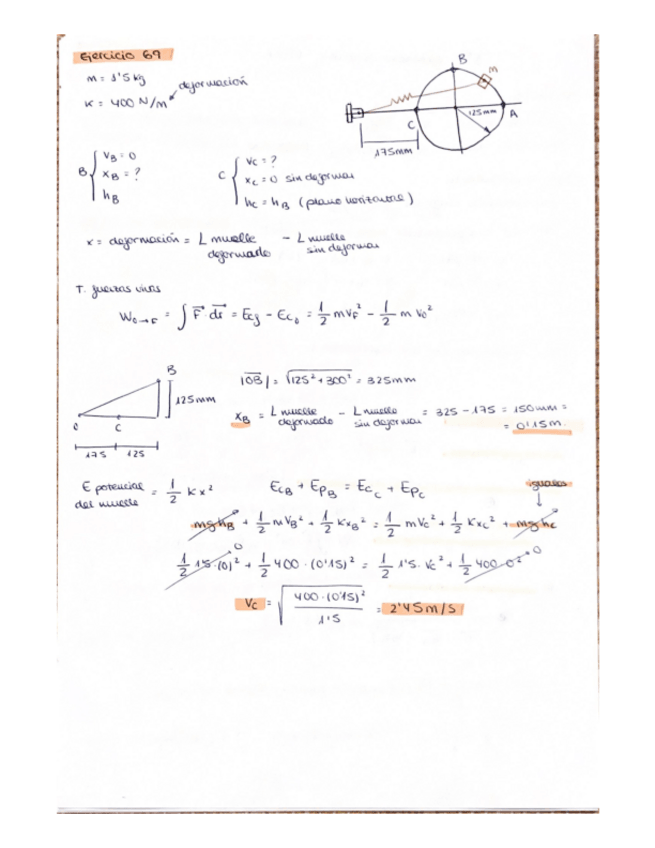 Ejercicio 69
m = 1'5 kg
deformación
K = 400 N/m
B
m
125mm
A
C
175mm
B { VB = 0
XB = ?
hB
C { Vc = ?
Xc = 0 sin deformar
hc = hB (plano horizontal)
x = deformación = L muelle deformado - L muelle sin deformar
T. fuerzas vivas
W0→F = ∫ F⃗ · ds⃗ = Ecf - Ec0 = 1/2 m VF² - 1/2 m V0²
B
125mm
0
C
175 125
|OB| = √125² + 300² = 325mm
XB = L muelle deformado - L muelle sin deformar = 325 - 175 = 150mm =
= 0'15m.
E potencial del muelle = 1/2 K x²
EcB + EpB = Ecc + Epc
iguales
mghB + 1/2 m VB² + 1/2 K XB² = 1/2 m Vc² + 1/2 K Xc² + mghc
1/2 1'5 · (0)² + 1/2 400 · (0'15)² = 1/2 1'5 · Vc² + 1/2 400 · 0²
0
0
Vc = √400 · (0'15)² / 1'5 = 2'45 m/s